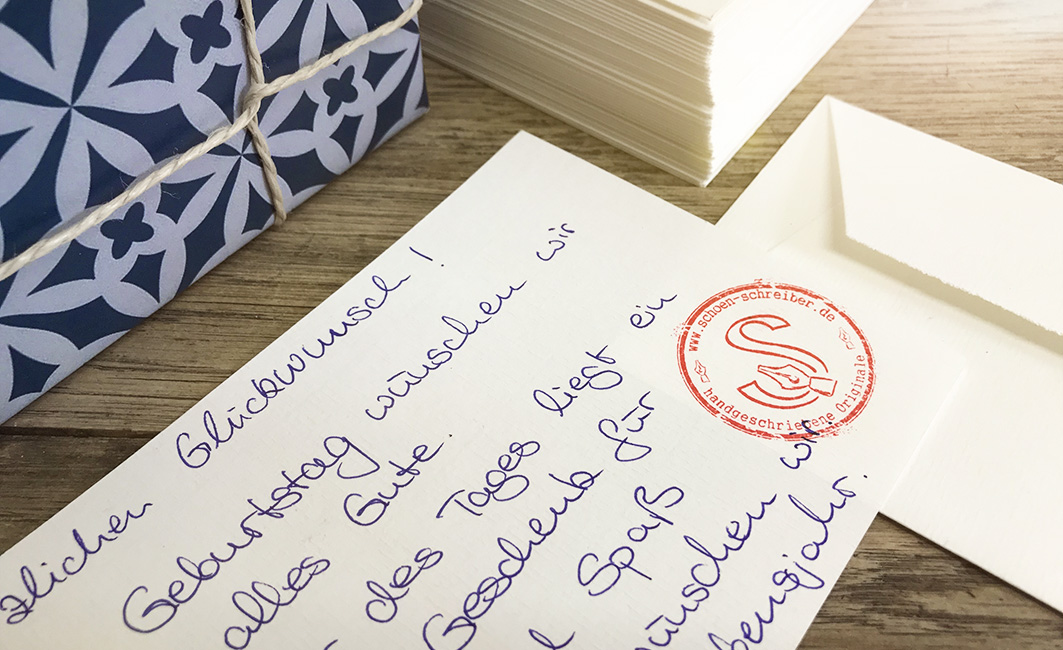 zlichen Glückwunsch!
Geburtstag wünschen wir
alles Gute.
des Tages liegt ein
Geschenk für
Spaß
wünschen wir
bensjahr.
www.schoen-schreiber.de
S
handgeschriebene Originale